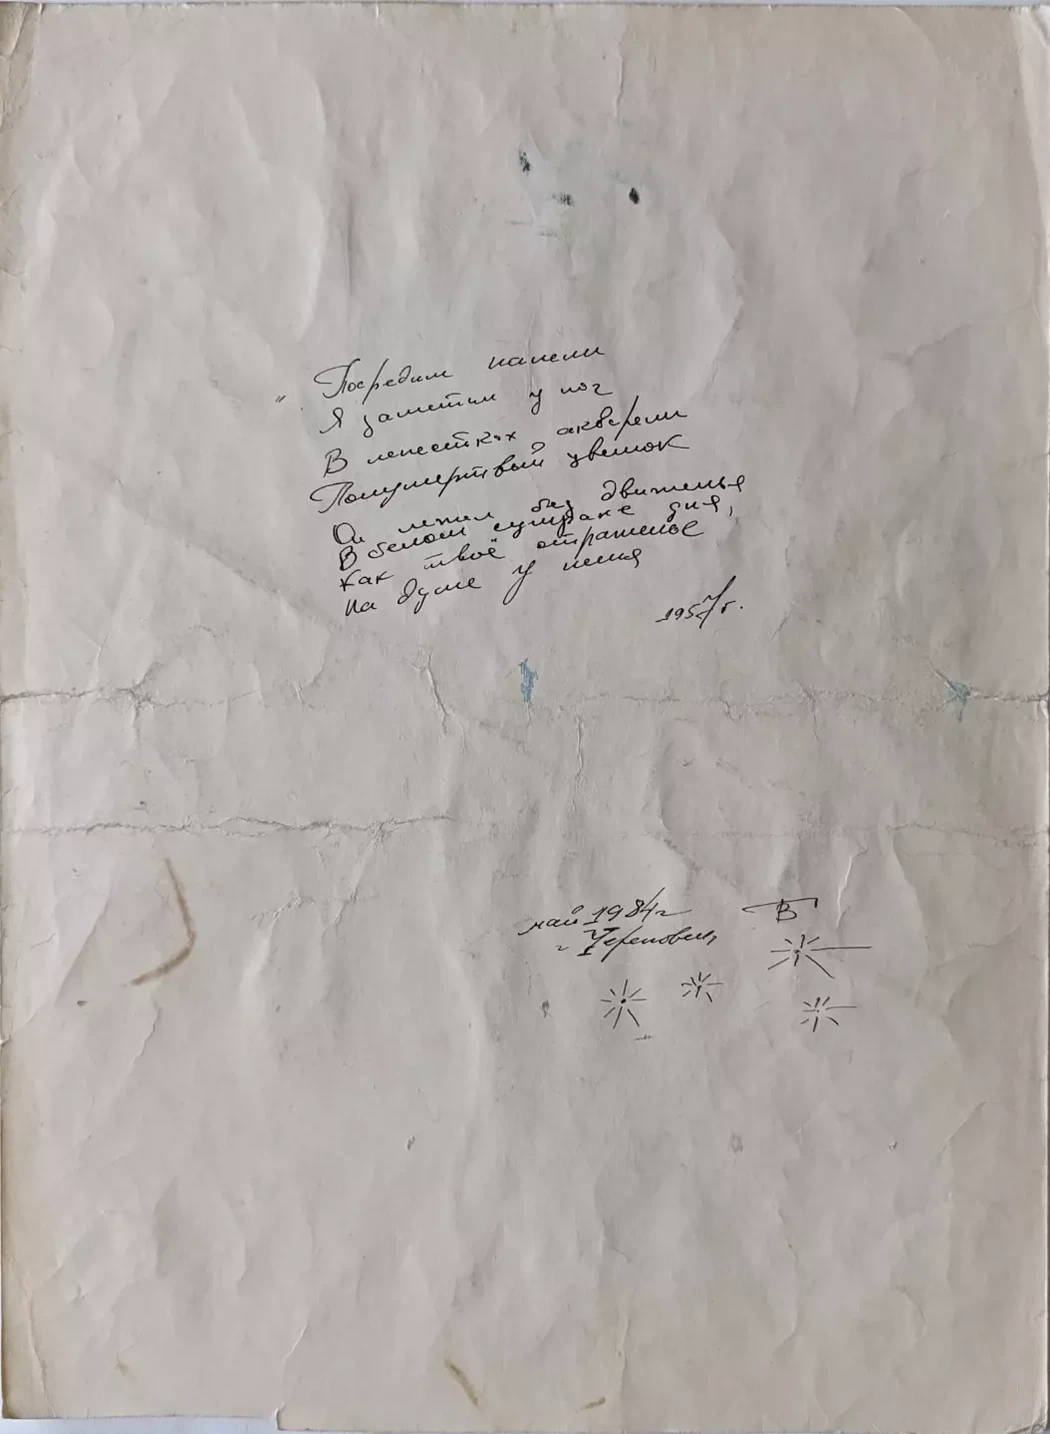 " Посредим панели
Я заметил у ног
В лепестках акварели
Полумертвый цветок
Он лежал без движенья
В белом сумраке дня,
Как твоё отраженье
На душе у меня
1957 г.
май 1984 г
г. Череповец
В